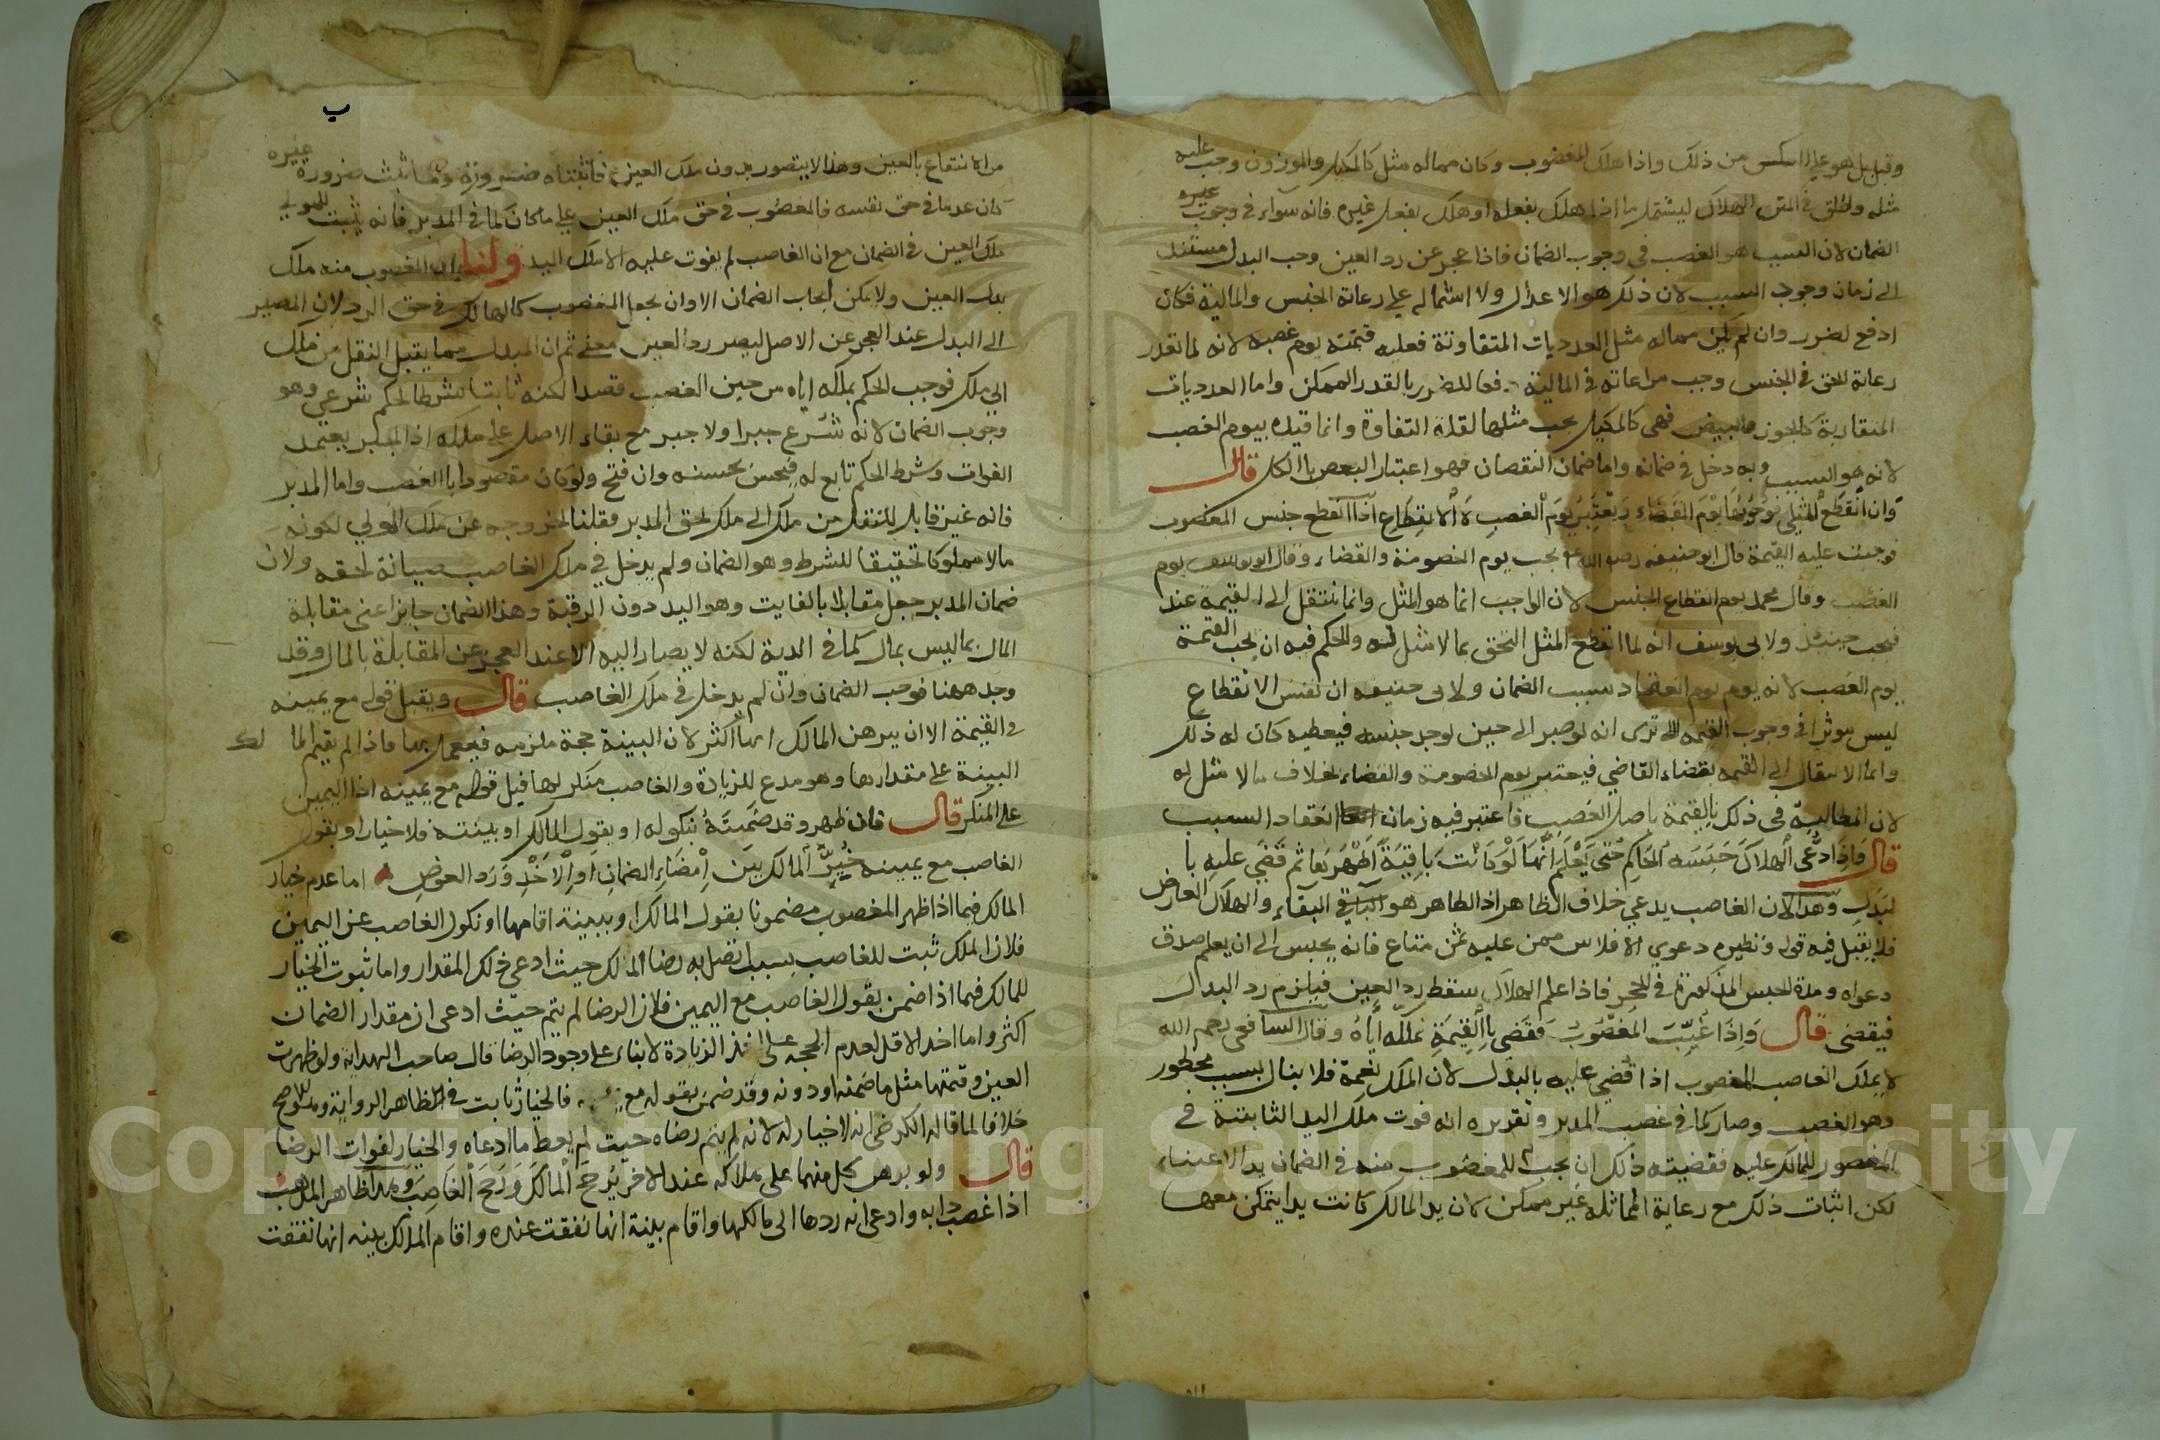 وقيل بل هو على العكس من ذلك واذا هلك المغضوب وكان مماله مثل كالمكيل والموزون وجب عليه
مثله واطلق في المتن الهلاك ليشتمل ما اذا هلك بفعله او هلك بفعل غيره فانه سواء في وجوب
الضمان لان السبب هو الغصب في وجوب الضمان فاذا عجز عن رد العين وجب البدل مستندا
الى زمان وجوب السبب لان ذلك هو الاعدل ولا اشتماله على رعاية الجنس والمالية فكان
ادفع لضرر وان لم يكن مماله مثل العدديات المتفاوتة فعليه قيمته يوم غصبه لانه لما تعذر
رعاية الحق في الجنس وجب مراعاته في المالية دفعا للضرر بالقدر الممكن واما العدديات
المتقاربة كالجوز والبيض فهى كالمكيل يجب مثلها لقلة التفاوة وانما قيده بيوم الغصب
لانه هو السبب وبه دخل في ضمانه واما ضمان النقصان فهو اعتبار البعض بالكل قال
وَان انْقَطَع المثلي فوجوبها يوم القضاء ويعتبر يوم الغصب لا الانقطاع اذا انقطع جنس المغصوب
فوجبت عليه القيمة قال ابو حنيفه رضي الله عنه يجب يوم الخصومة والقضاء وقال ابو يوسف يوم
الغصب وقال محمد يوم انقطاع الجنس لان الواجب انما هو المثل وانما ينتقل الى القيمة عند
فيجب حينئذ ولابي يوسف انه لما انقطع المثل التحق بما لا مثل له والحكم فيه ان يجب القيمة
يوم الغصب لانه يوم انعقاد سبب الضمان ولابي حنيفه ان نفس الانقطاع
ليس موثرا في وجوب القيمه الا ترى انه لو صبر الى حين لوجد جنسه فيعطيه كان له ذلك
وانما الانتقال الى القيمه بقضاء القاضي فيعتبر يوم الخصومة والقضاء بخلاف ما لا مثل له
لان المطالبة في ذلك بالقيمة باصل الغصب فاعتبر فيه زمان انعقاد السبب
قال وَاِذَا ادّعى الهلاك حَبَسَه الحَاكم حَتى يَعْلَم اَنَّهَا لَوْ كَانَتْ بَاقِيَةً اَظْهَرَهَا ثم قضى عليه با
لبَدل وهذا لان الغاصب يدعي خلاف الظاهر اذ الظاهر هو البقاء والهلاك العارض
فلا يقبل فيه قوله ونظيره دعوي الافلاس ممن عليه ثمن متاع فانه يحبس الى ان يعلم صدق
دعواه ومدة الحبس المذكورة في الحجر فاذا علم الهلاك سقط رد العين فيلزم رد البدل
فيقضى قال وَاِذَا غُيِّبَ المَغْصُوب فَقَضي بالقيمَةِ مَلَكَه اياهُ وقال الشافعي رحمه الله
لا يملك الغاصب المغصوب اذا قضي عليه بالبدل لان الملك نعمة فلا ينال بسبب محظور
وهو الغصب وصار كما في غصب المدبر وتقريره انه فوت ملك اليد الثابتة في
المغصوب للمالك عليه فقضيته ذلك ان يجب للمغضوب منه في الضمان يد الاعتناء
لكن اثبات ذلك مع رعاية المماثلة غير ممكن لان يد المالك كانت يدا يتمكن معها
من الانتفاع بالعين وهذا لا يتصور بدون ملك العين فاثبتناه ضرورة وما يثبت ضرورة غيره
كان عدما في حق نفسه فالمغضوب في حق ملك العين على ما كان كما في المدبر فانه يثبت للمولي
ملك العين في الضمان مع ان الغاصب لم يفوت عليه الا ملك اليد ولنا ان المغصوب منه ملك
بدل العين ولا يمكن ايجاب الضمان الا وان يجعل المغضوب كالهالك في حق الرد لان المصير
الى البدل عند العجز عن الاصل ليصير رد العين معنى ثم ان المبدل مما يقبل النقل من ملك
الى ملك فوجب الحكم بملكه اياه من حين الغصب قصدا لكنه ثابتا شرطا لحكم شرعي وهو
وجوب الضمان لانه شرع جبرا ولا جبر مع بقاء الاصل على ملكه اذ الجبر يعتمد
الفوات وشرط الحكم تابع له فيحسن بحسنه وان قبح ولو كان مقصودا بالغصب واما المدبر
فانه غير قابل للنقل من ملك الى ملك لحق المدبر وقلنا بخروجه عن ملك المولي لكونه
مالا مملوكا تحقيقا للشرط وهو الضمان ولم يدخل في ملك الغاصب صيانة لحقه ولان
ضمان المدبر جعل مقابلا بالفايت وهو اليد دون الرقبة وهذا الضمان جايز اعني مقابلة
المال بما ليس بمال كما في الدية لكنه لا يصار اليه الا عند العجز عن المقابلة بالمال وقد
وجد ههنا فوجب الضمان وان لم يدخل في ملك الغاصب قال ويقبل قوله مع يمينه
في القيمة الا ان يبرهن المالك انها اكثر لان البينة حجة ملزمه فيعمل بها فاذا لم يقم الما لك
البينة على مقدارها وهو مدع للزيادة والغاصب منكر لها قبل قوله مع يمينه اذ اليمين
على المنكر قال فان ظهر وقد ضَمِنَهُ بنكوله او بقول المالك او بينته فلا خيار او بقول
الغاصب مع يمينه خُيرَّ المالك بيَن اِمْضاءِ الضمان اوِ الاَخْذِ وَرَد العوض اما عدم خيار
المالك فيما اذا ظهر المغصوب مضمونا بقول المالك او ببينة اقامها او نكول الغاصب عن اليمين
فلان الملك ثبت للغاصب بسبب اتصل به رضا المالك حيث ادعى ذلك المقدار واما ثبوت الخيار
للمالك فيما اذا ضمن بقول الغاصب مع اليمين فلان الرضا لم يتم حيث ادعى ان مقدار الضمان
اكثر واما اخذ الاقل لعدم الحجه على اخذ الزيادة لا بناء على وجود الرضا قال صاحب الهداية ولو ظهرت
العين وقيمتها مثل ما ضمنه او دونه وقد ضمن بقوله مع يمينه فالخيار ثابت في الظاهر الرواية وهو الاصح
خلافا لما قاله الكرخى انه لا خيار له لانه لم يتم رضاه حيث لم يعط ما ادعاه والخيار لفوات الرضا
قال ولو برهن كل منهما على هلاكه عند الاخر يُرجحَ المالك وَرَجحَ الغَاصِبَ وهذا ظاهر المذهب
اذا غصب دابه وادعى انه ردها الى مالكها واقام بينة انها نفقت عنده واقام المالك بينه انها نفقت
Copyright © King Saud University